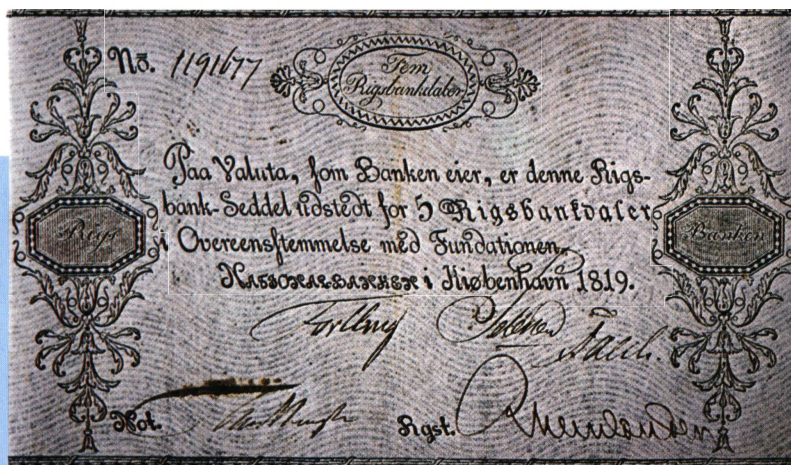 No. 1191677
Fem
Rigsbankdaler
Paa Valuta, ſom Banken eier, er denne Rigs-
bank-Seddel udstedt for 5 Rigsbankdaler
i Overeensſtemmelse med Fundationen.
Rigs
Banken
i Kiøbenhavn 1819.
Not.
Rgst.